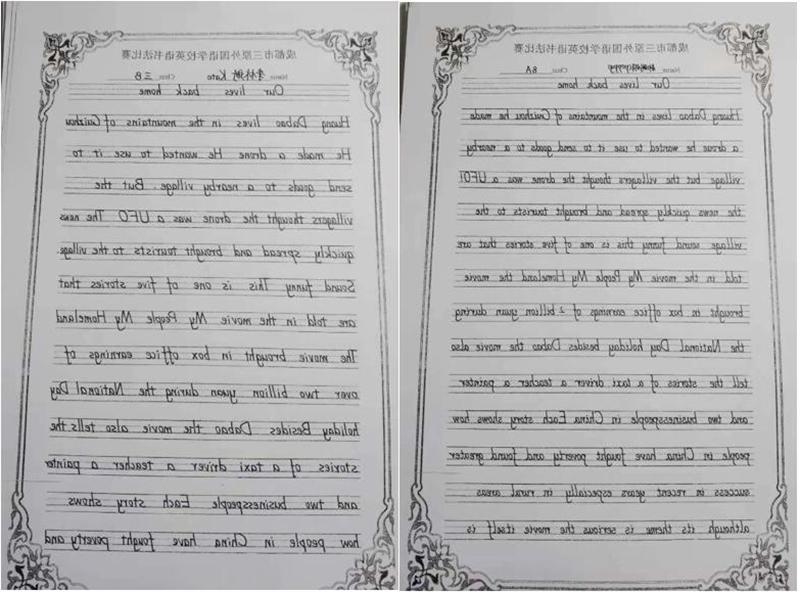 成都市三原外国语学校英语书法比赛
Name Kate Class 三B
Our lives back home
Huang Dabao lives in the mountains of Guizhou
He made a drone He wanted to use it to
send goods to a nearby village. But the
villagers thought the drone was a UFO The news
quickly spread and brought tourists to the village
Sound funny This is one of five stories that
are told in the movie My People My Homeland
The movie brought in box office earnings of
over two billion yuan during the National Day
holiday Besides Dabao the movie also tells the
stories of a taxi driver a teacher a painter
and two businesspeople Each story shows
how people in China have fought poverty and
成都市三原外国语学校英语书法比赛
Name Class 8A
Our lives back home
Huang Dabao lives in the mountains of Guizhou he made
a drone he wanted to use it to send goods to a nearby
village but the villagers thought the drone was a UFO!
the news quickly spread and brought tourists to the
village sound funny this is one of five stories that are
told in the movie My People My Homeland the movie
brought in box office earnings of 2 billion yuan during
the National Day holiday besides Dabao the movie also
tell the stories of a taxi driver a teacher a painter
and two businesspeople in China Each story shows how
people in China have fought poverty and found greater
success in recent years especially in rural areas
although its theme is serious the movie itself is